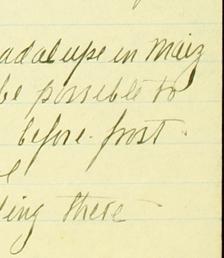 adalupe in Maiz
be possible to
before frost
ling there